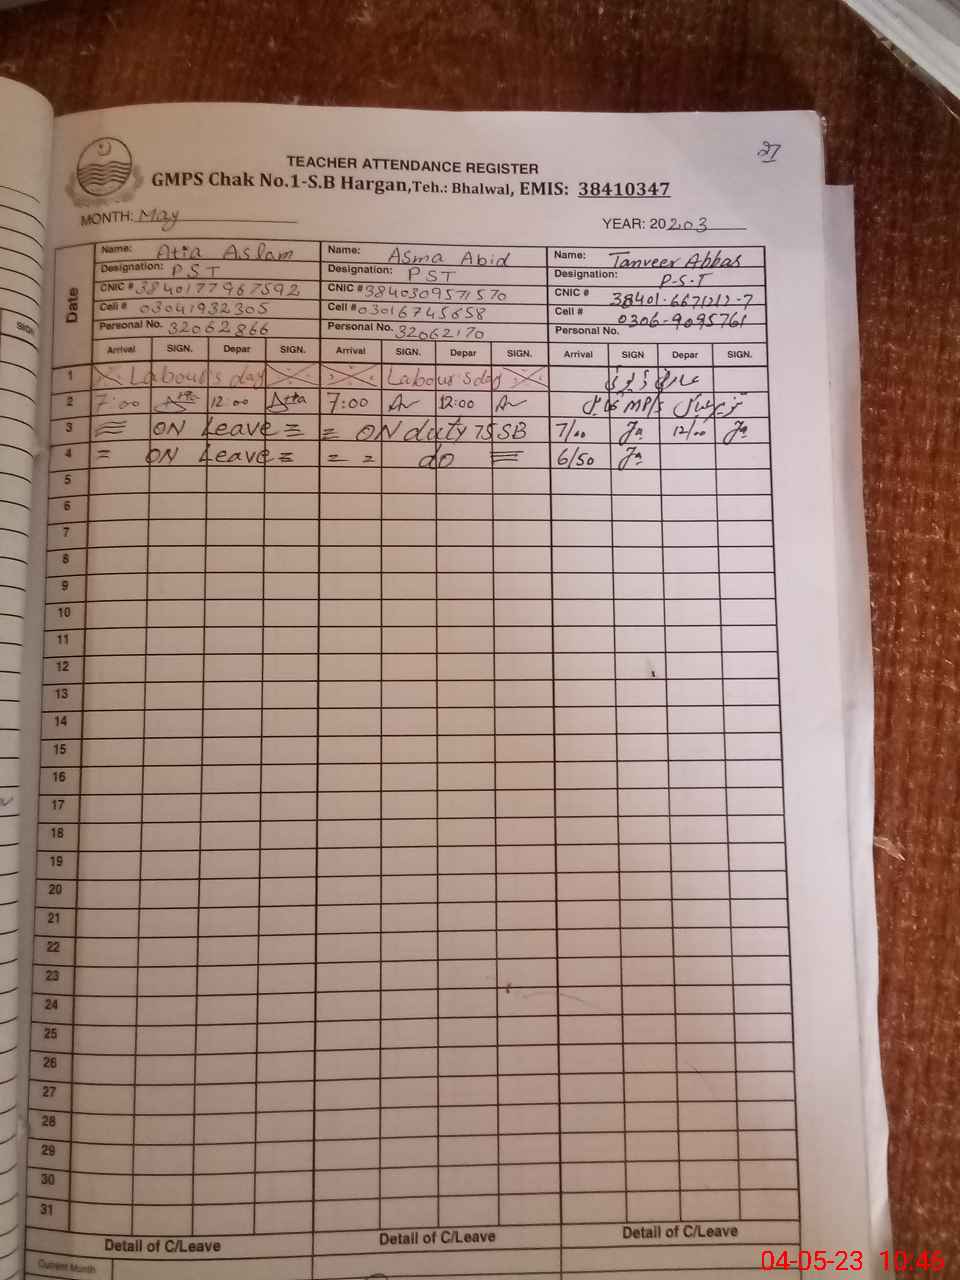 27
TEACHER ATTENDANCE REGISTER
GMPS Chak No.1-S.B Hargan, Teh.: Bhalwal, EMIS: 38410347
MONTH: May YEAR: 20203
Date
Name: Atia Aslam Name: Asma Abid Name: Tanveer Abbas
Designation: PST Designation: PST Designation: P-S-T
CNIC # 3840177967592 CNIC # 3840309571570 CNIC #
Cell # 03041932305 Cell # 03016745658 Cell # 0306-9095761
Personal No. 32062866 Personal No. 32062170 Personal No.
Arrival SIGN. Depar SIGN. Arrival SIGN. Depar SIGN. Arrival SIGN Depar SIGN.
1 Labour's day Labour's day
2 7:00 12:00 Atia 7:00 12:00 MP/S
3 ON Leave = = ON duty 75SB 7/00 12/00
4 = ON Leave = = = do 6/50
5
6
7
8
9
10
11
12
13
14
15
16
17
18
19
20
21
22
23
24
25
26
27
28
29
30
31
Detail of C/Leave Detail of C/Leave Detail of C/Leave
Current Month
SIGN
04-05-23 10:46